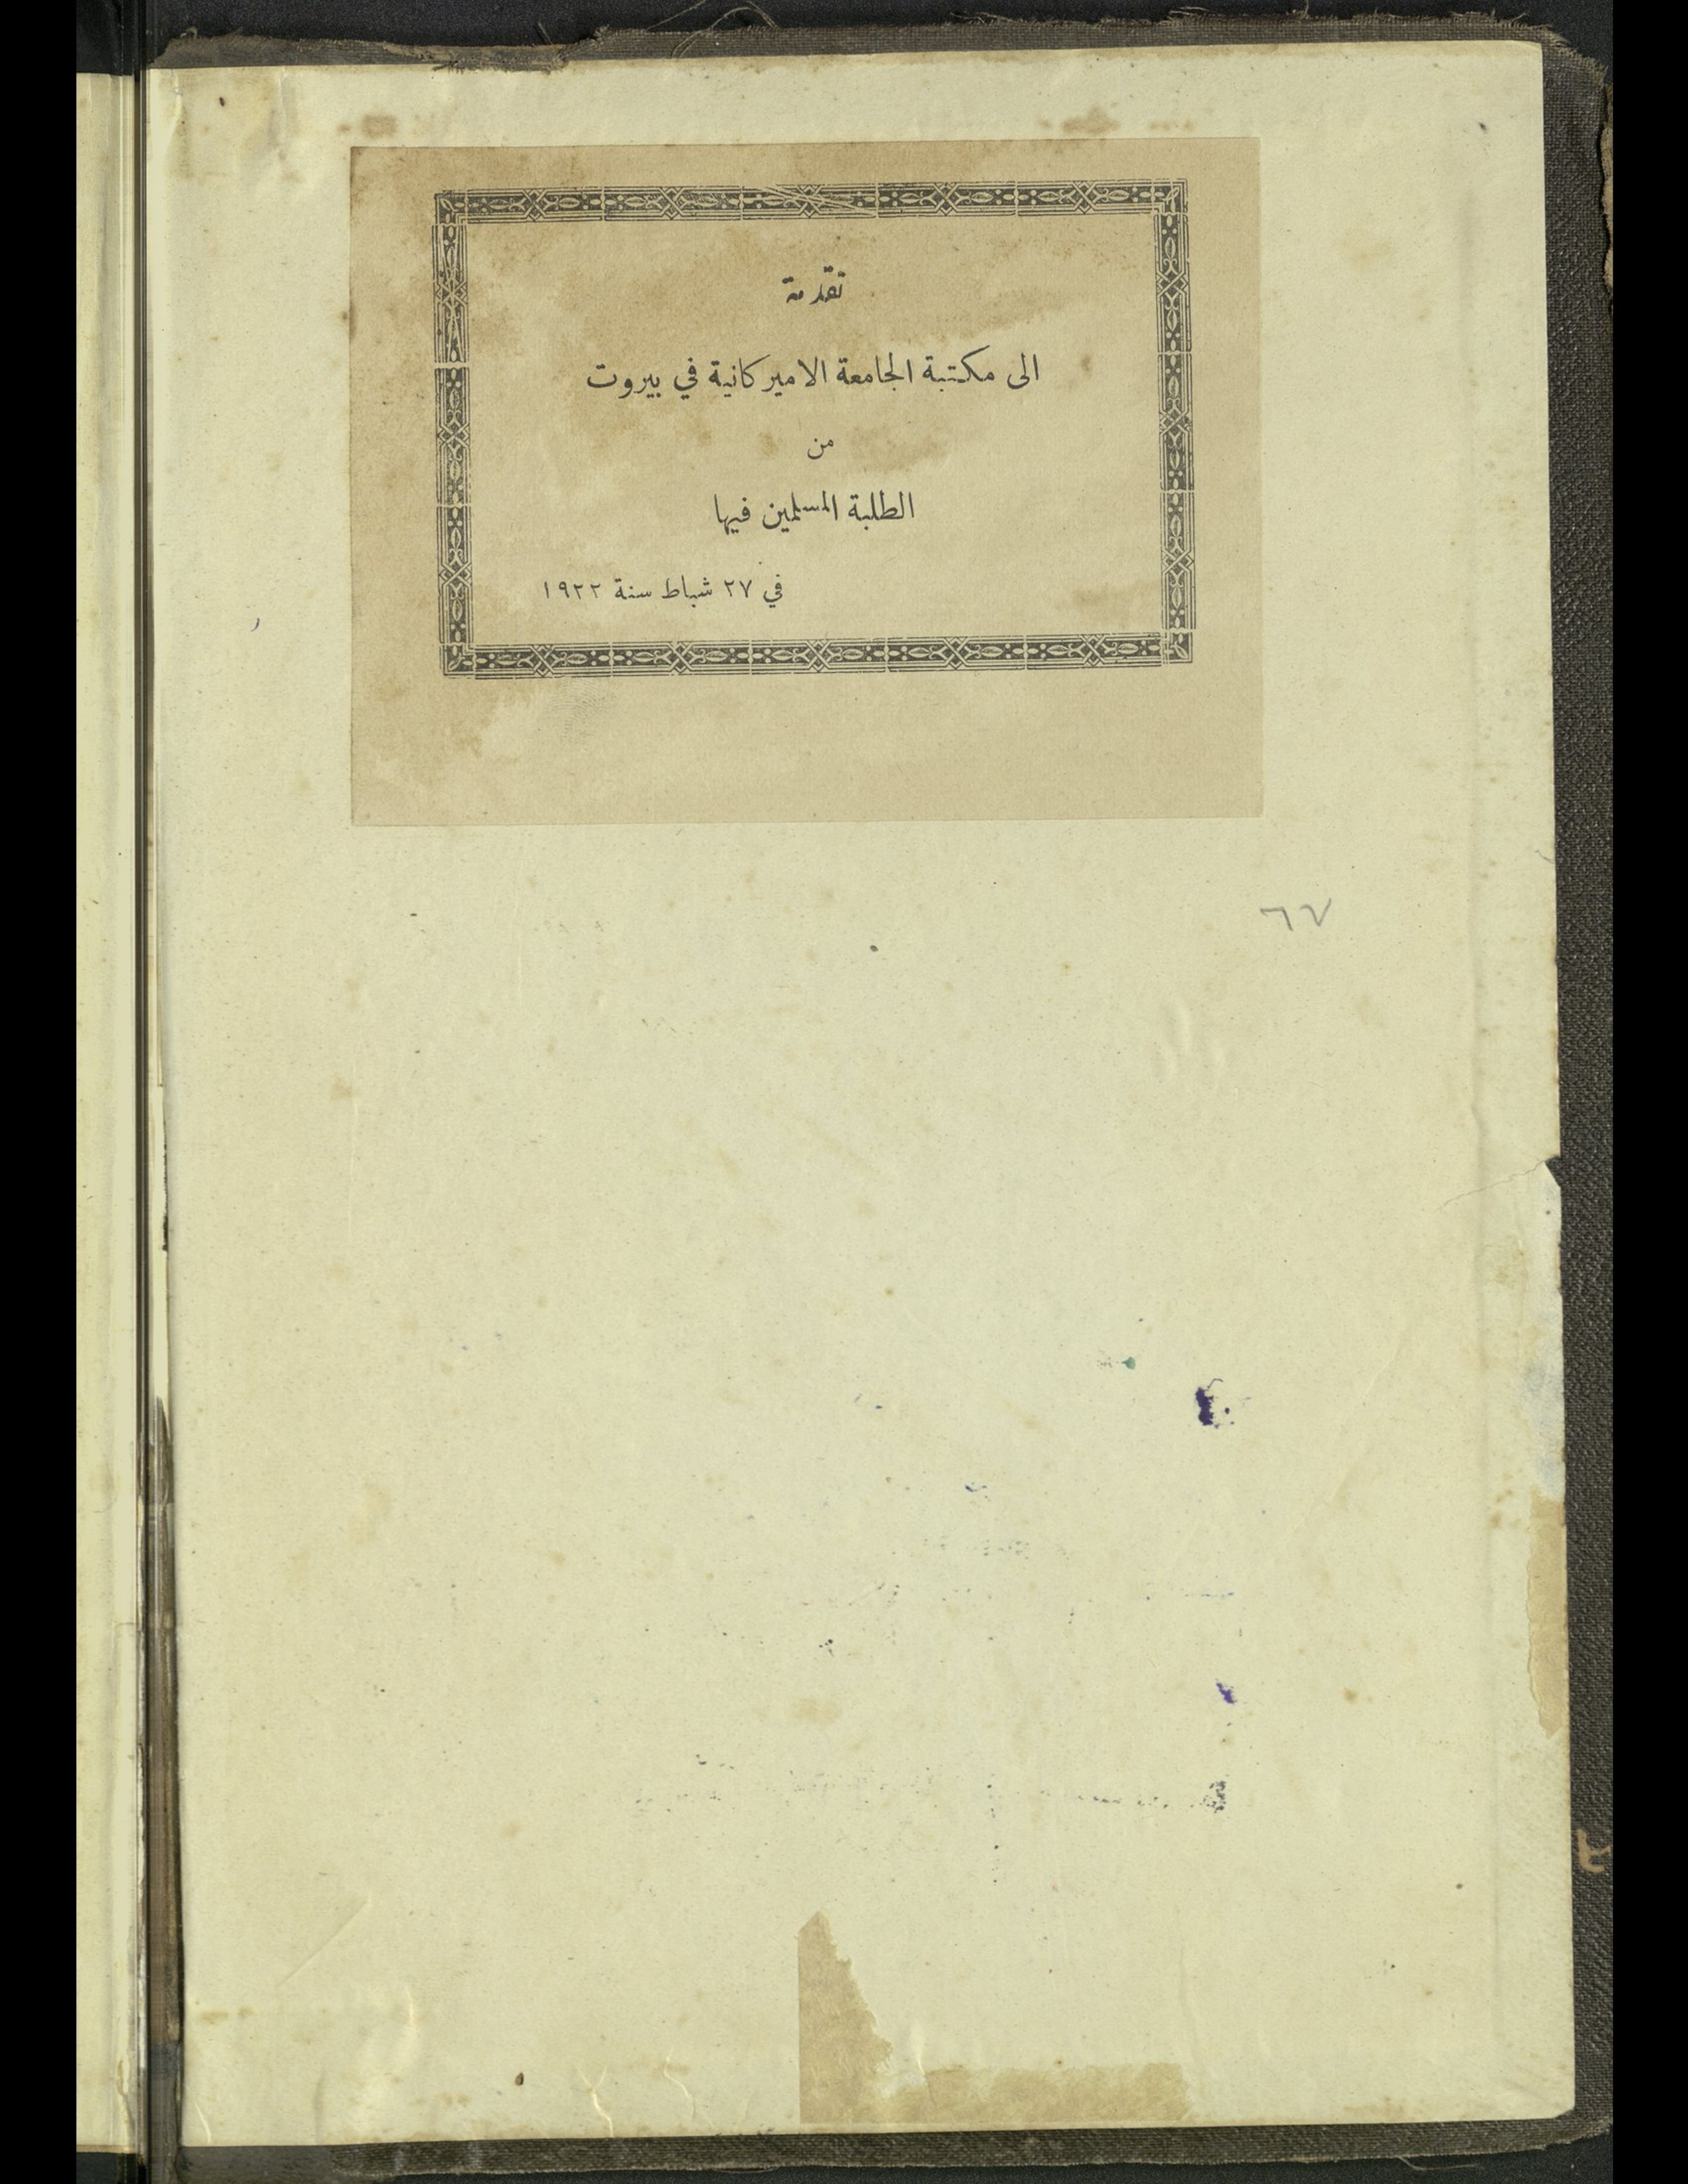 تقدمة
الى مكتبة الجامعة الاميركانية في بيروت
من
الطلبة المسلمين فيها
في ٢٧ شباط سنة ١٩٢٢
٦٧